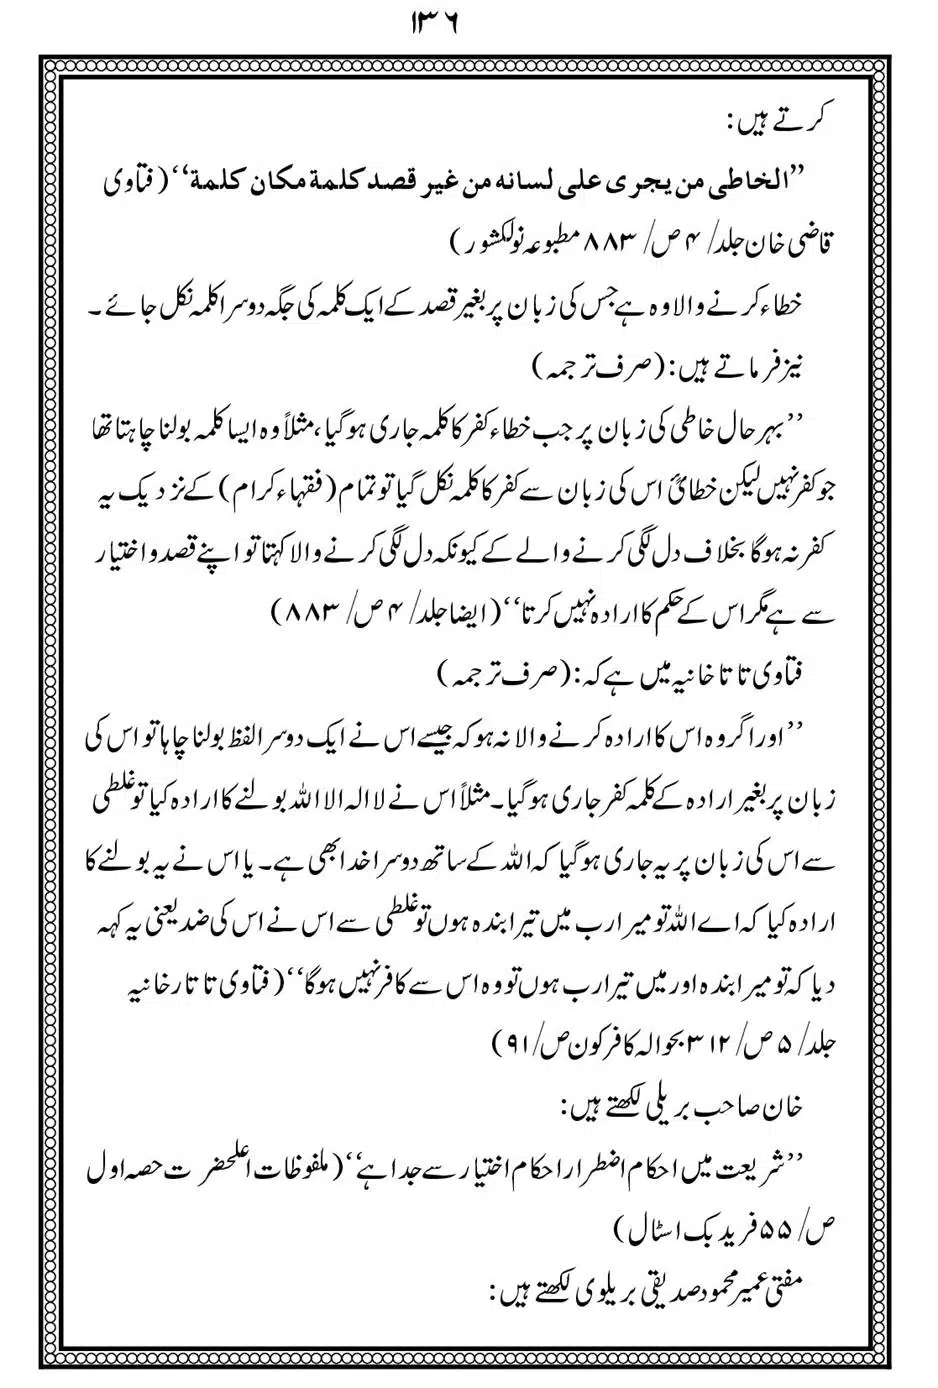 ۱۳۶
کرتے ہیں:
”الخاطی من یجری علی لسانه من غیر قصد کلمة مکان کلمة‘‘(فتاوی
قاضی خان جلد/ ۴ ص/ ۸۸۳ مطبوعہ نولکشور)
خطاء کرنے والا وہ ہے جس کی زبان پر بغیر قصد کے ایک کلمہ کی جگہ دوسرا کلمہ نکل جائے۔
نیز فرماتے ہیں:(صرف ترجمہ)
’’بہر حال خاطی کی زبان پر جب خطاء کفر کا کلمہ جاری ہو گیا،مثلاً وہ ایسا کلمہ بولنا چاہتا تھا
جو کفر نہیں لیکن خطائً اس کی زبان سے کفر کا کلمہ نکل گیا تو تمام (فقہاء کرام) کے نزدیک یہ
کفر نہ ہوگا بخلاف دل لگی کرنے والے کے کیونکہ دل لگی کرنے والا کہتا تو اپنے قصد و اختیار
سے ہے مگر اس کے حکم کا ارادہ نہیں کرتا‘‘(ایضا جلد/ ۴ ص/ ۸۸۳)
فتاوی تا تا خانیہ میں ہے کہ:(صرف ترجمہ)
’’اور اگر وہ اس کا ارادہ کرنے والا نہ ہو کہ جیسے اس نے ایک دوسرا لفظ بولنا چاہا تو اس کی
زبان پر بغیر ارادہ کے کلمہ کفر جاری ہو گیا۔مثلاً اس نے لا الہ الا اللہ بولنے کا ارادہ کیا تو غلطی
سے اس کی زبان پر یہ جاری ہو گیا کہ اللہ کے ساتھ دوسرا خدا بھی ہے۔یا اس نے یہ بولنے کا
ارادہ کیا کہ اے اللہ تو میرا رب میں تیرا بندہ ہوں تو غلطی سے اس نے اس کی ضد یعنی یہ کہہ
دیا کہ تو میرا بندہ اور میں تیرا رب ہوں تو وہ اس سے کافر نہیں ہوگا‘‘(فتاوی تا تارخانیہ
جلد/ ۵ ص/ ۳۱۲ بحوالہ کافر کون ص/ ۹۱)
خان صاحب بریلی لکھتے ہیں:
’’شریعت میں احکام اضطرار احکام اختیار سے جدا ہے‘‘(ملفوظات اعلحضرت حصہ اول
ص/ ۵۵ فرید بک اسٹال)
مفتی عمیر محمود صدیقی بریلوی لکھتے ہیں: